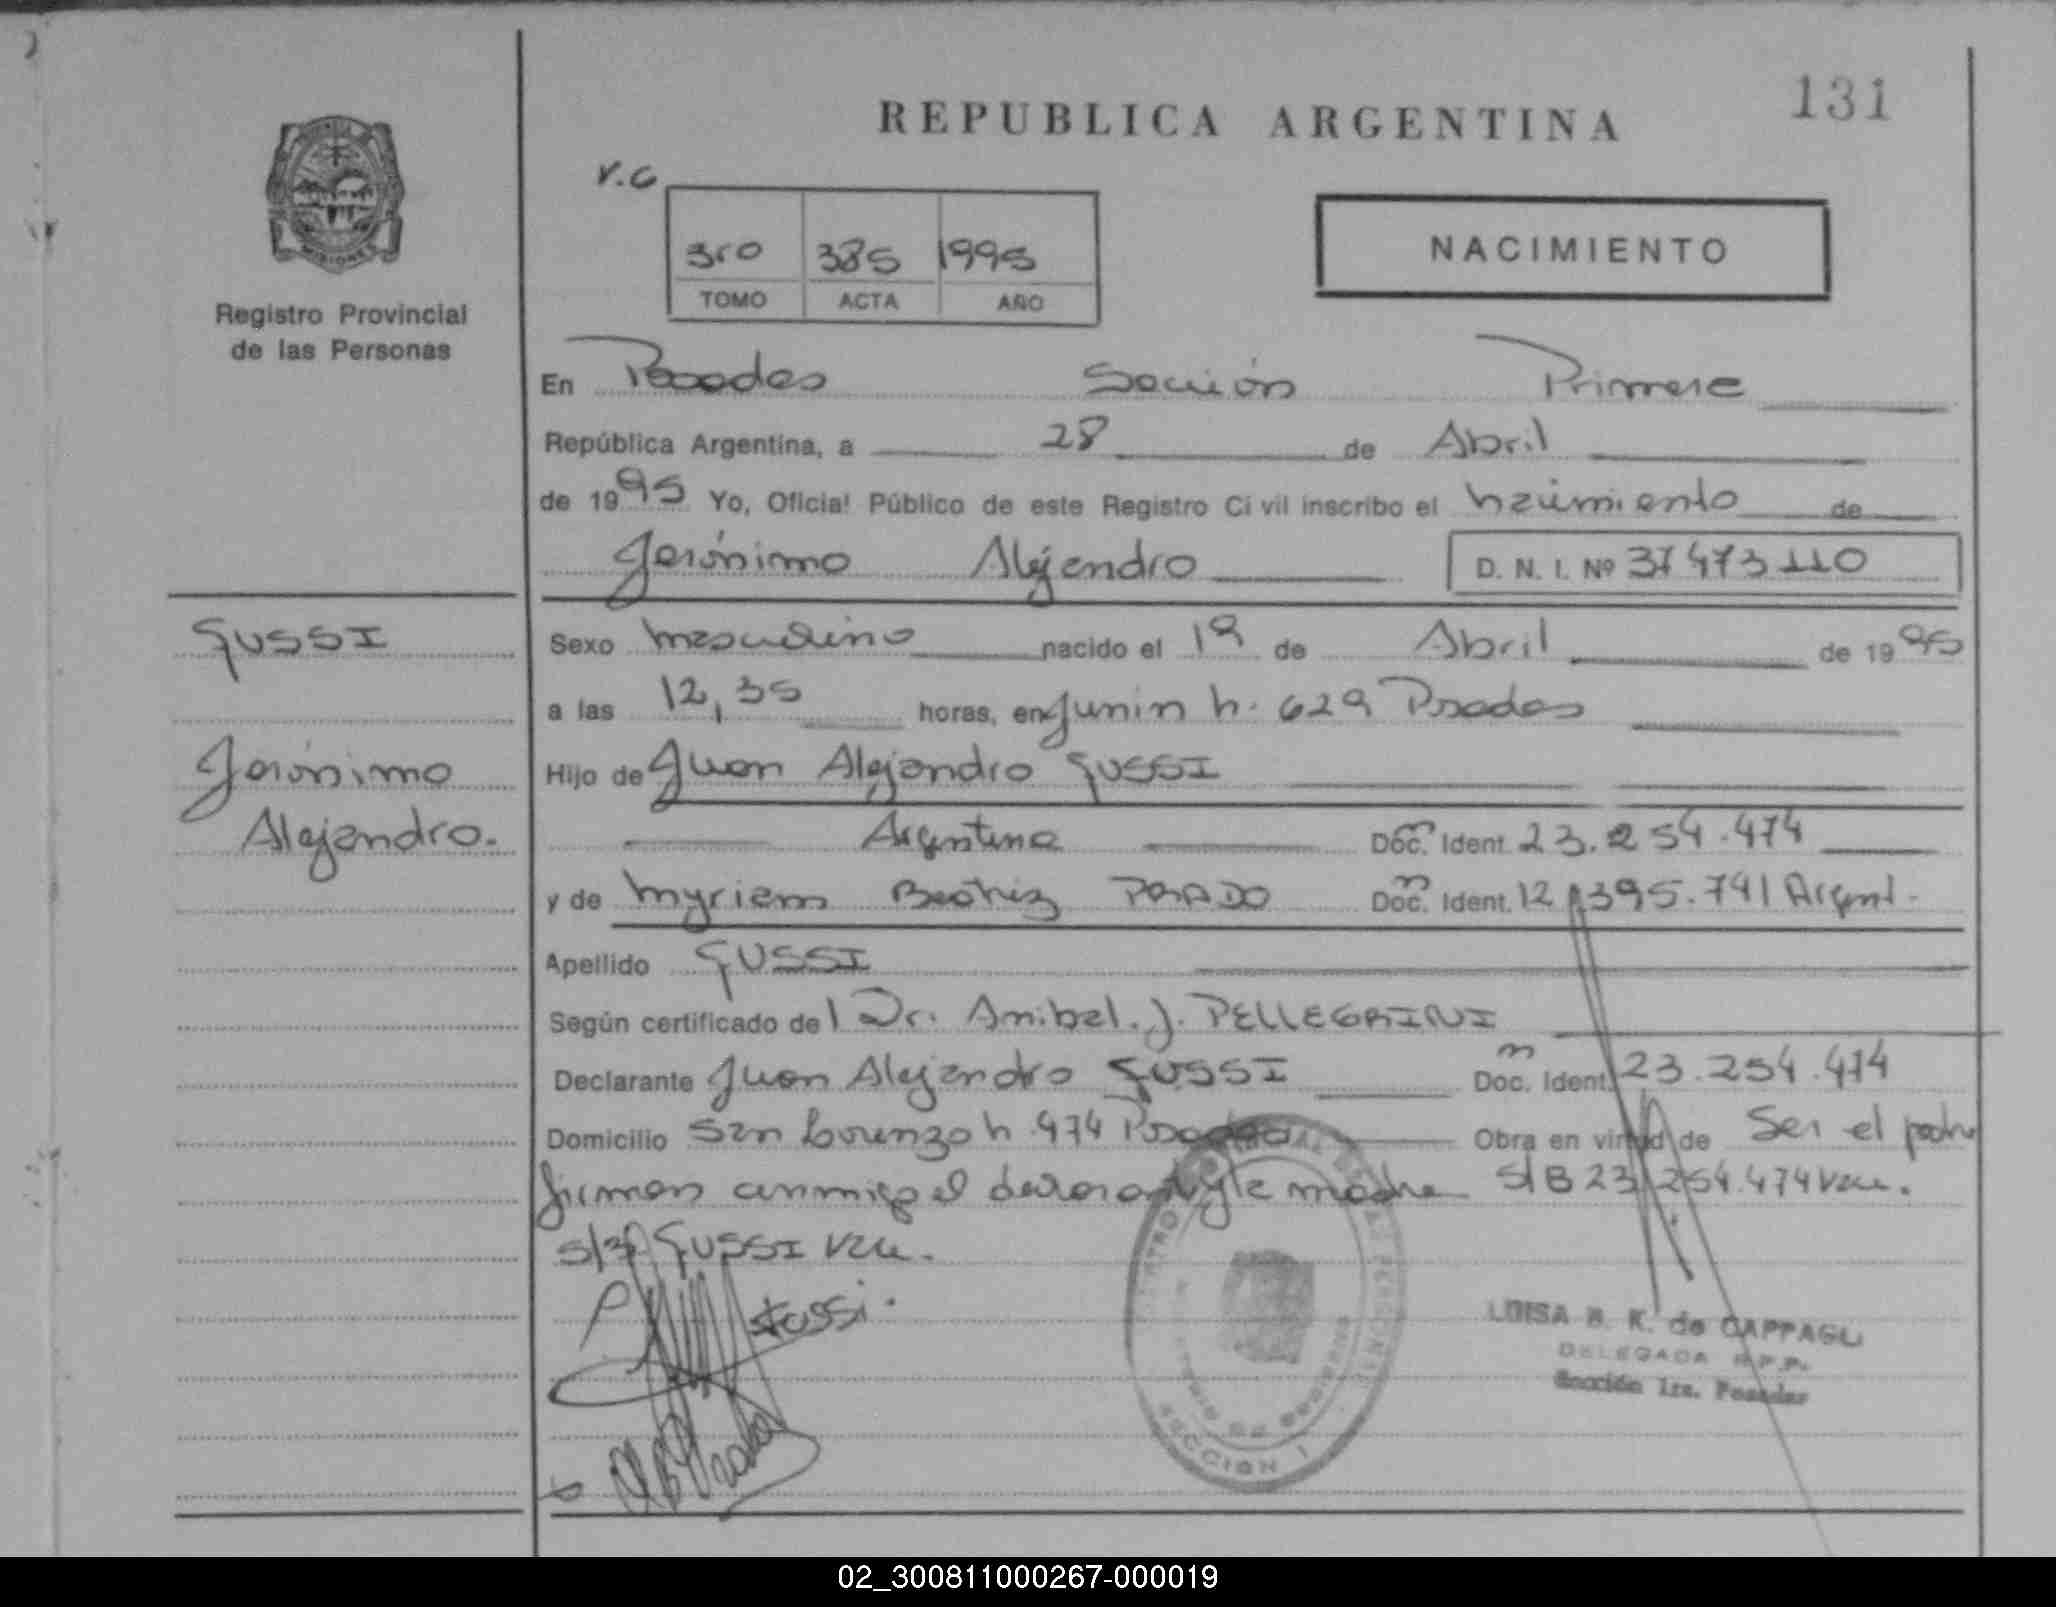 131
REPUBLICA ARGENTINA
V.C
NACIMIENTO
3ro 385 1995
TOMO ACTA AÑO
Registro Provincial
de las Personas
En Posadas Sección Primera
República Argentina, a 28 de Abril
de 1995 Yo, Oficial Público de este Registro Civil inscribo el nacimiento de
Jerónimo Alejandro D. N. I. Nº 37473110
GUSSI
Jerónimo
Alejandro.
Sexo masculino nacido el 19 de Abril de 1995
a las 12,35 horas, en Junin n. 629 Posadas
Hijo de Juan Alejandro GUSSI
Argentina Doc. Ident. 23.254.474
y de Myriam Beatriz PRADO Doc. Ident. 12.395.741 Argent.
Apellido GUSSI
Según certificado del Dr. Anibal. J. PELLEGRINI
Declarante Juan Alejandro GUSSI Doc. Ident. 23.254.474
Domicilio San Lorenzo n. 474 Posadas Obra en virtud de Ser el padre
firman conmigo el declarante y la madre S/B 23.254.474 Vale.
S/R GUSSI Vale.
Gussi.
LUISA B. K. de CAPPAGLI
DELEGADA R.P.P.
Sección 1ra. Posadas
SECCION 1
02_300811000267-000019